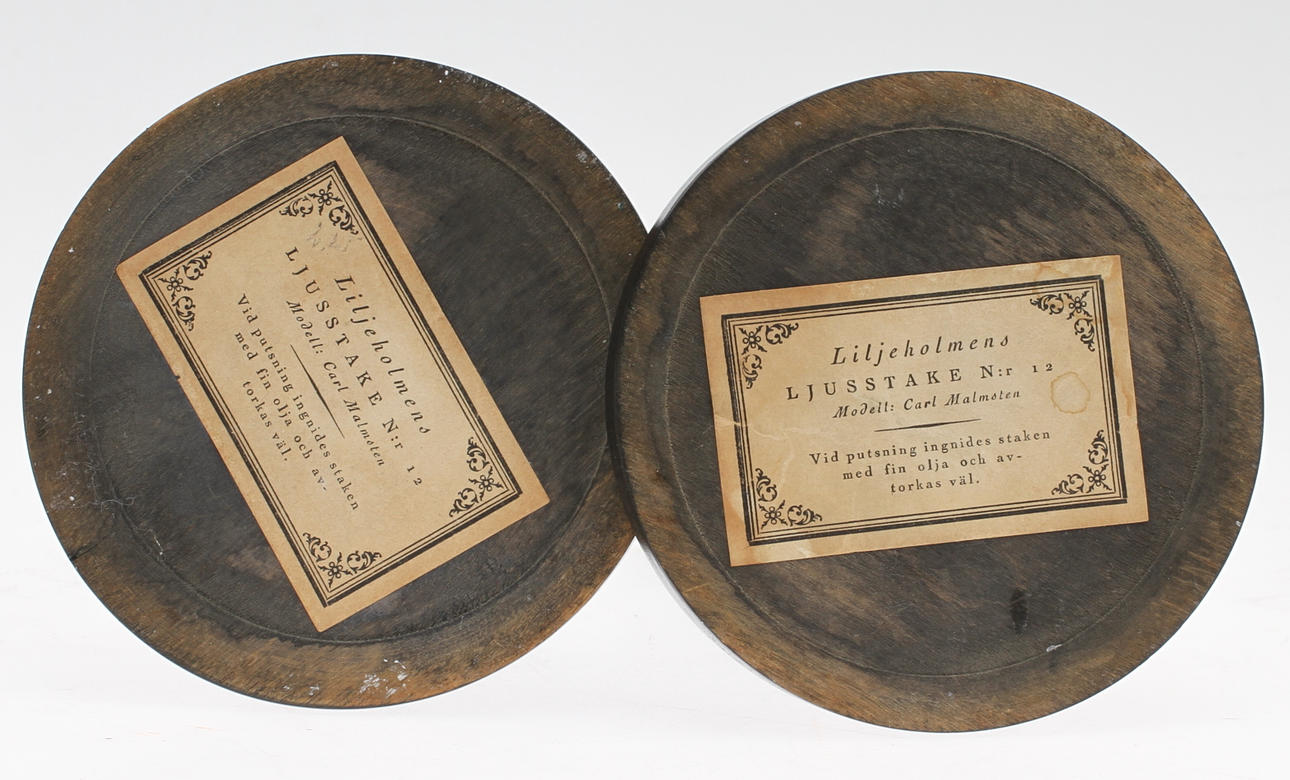 Liljeholmens
LJUSSTAKE N:r 12
Modell: Carl Malmsten
Vid putsning ingnides staken
med fin olja och av-
torkas väl.
Liljeholmens
LJUSSTAKE N:r 12
Modell: Carl Malmsten
Vid putsning ingnides staken
med fin olja och av-
torkas väl.